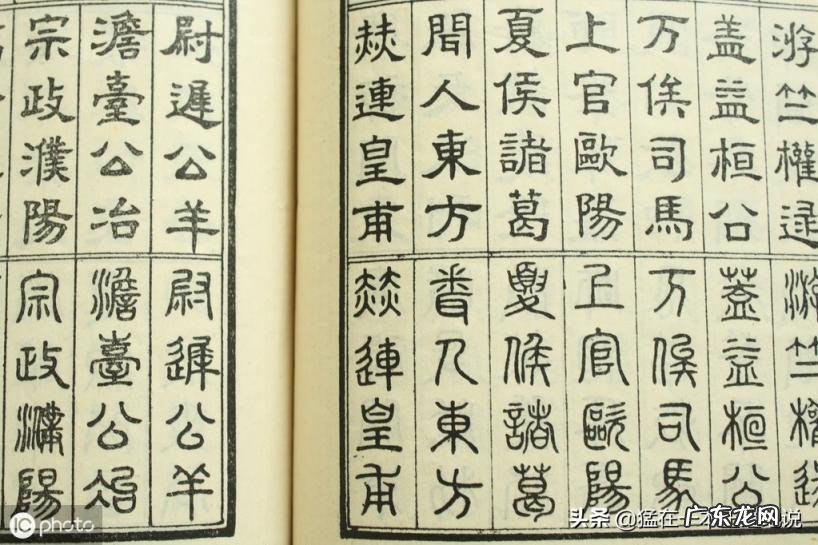 游竺權逯
盖益桓公
万俟司馬
上官歐陽
夏侯諸葛
聞人東方
赫連皇甫
游竺權逯
蓋益桓公
万俟司馬
上官歐陽
夏侯諸葛
人東方
赫連皇甫
尉遲公羊
澹臺公冶
宗政濮陽
尉遲公羊
澹臺公冶
宗政濮陽
iC photo
头条 @猛在
广东龙网